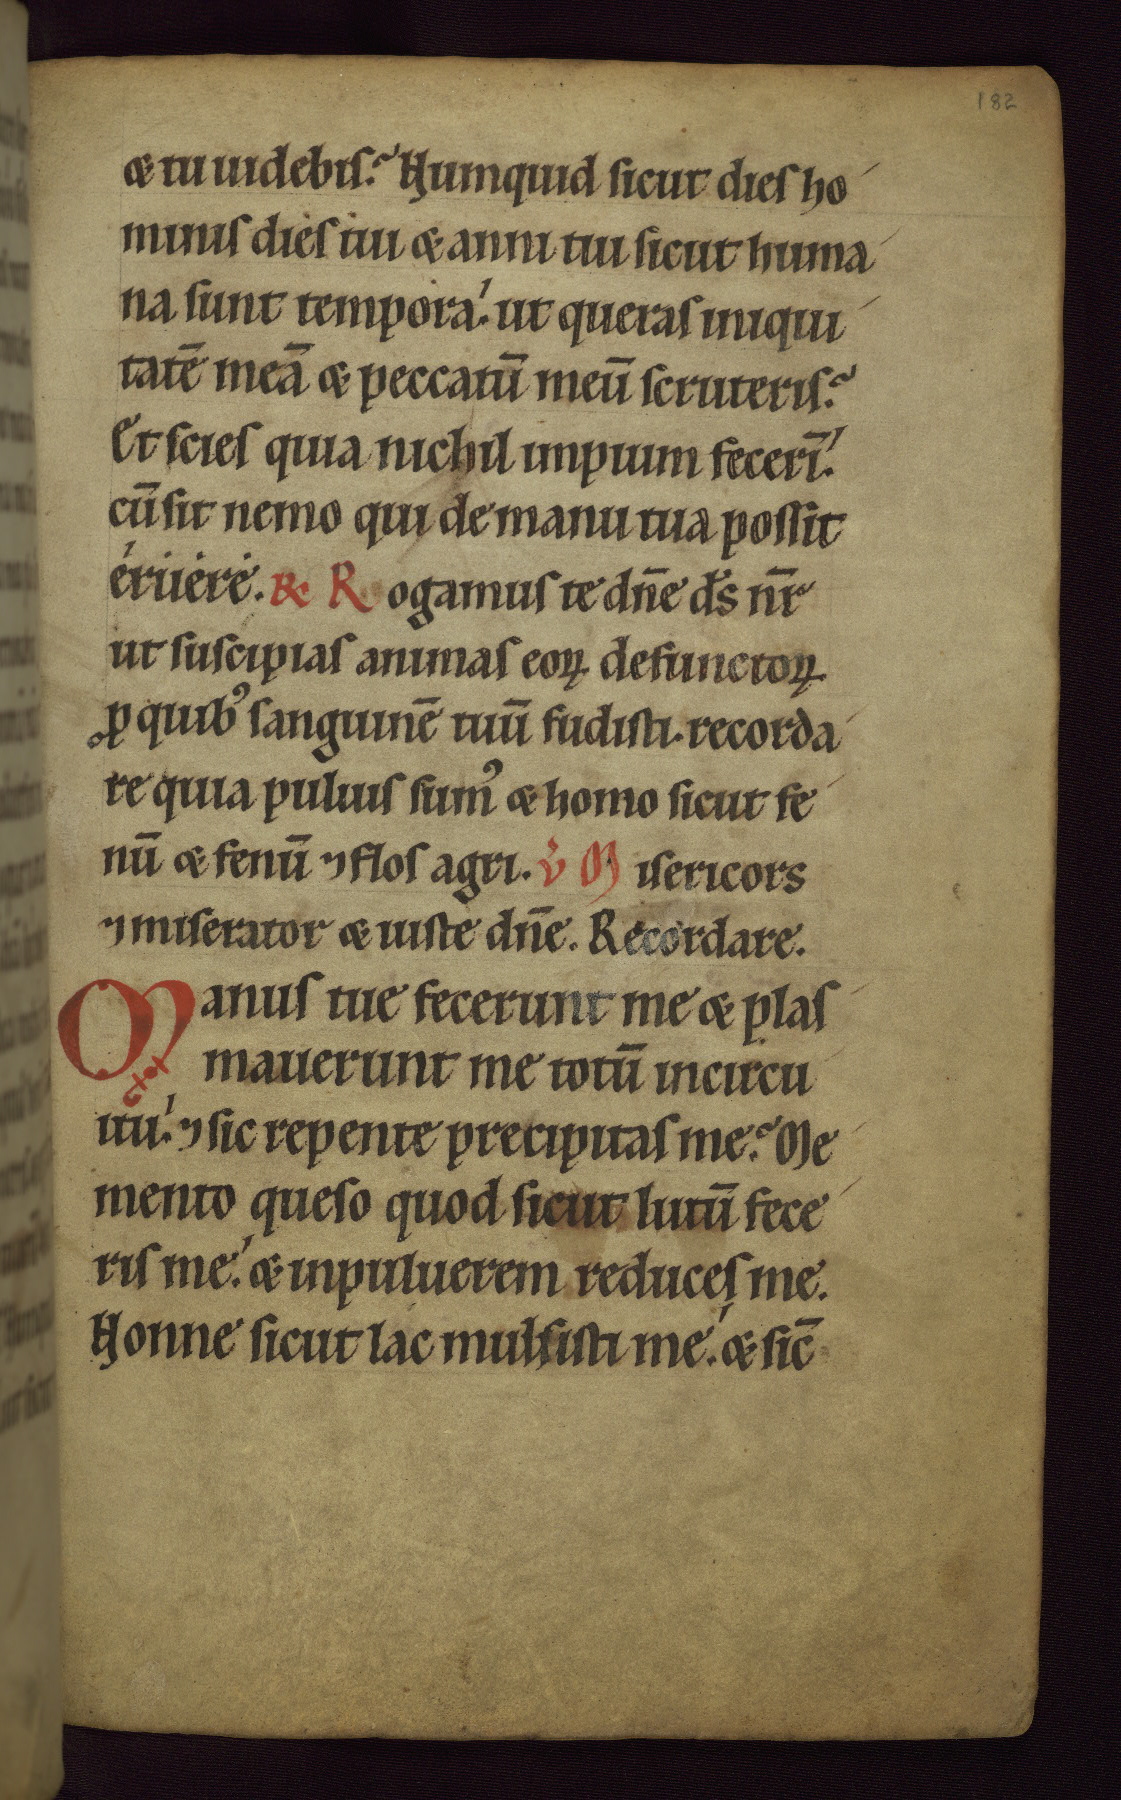 182
& tu uidebis? Numquid sicut dies ho
minis dies tui & anni tui sicut huma
na sunt tempora. ut queras iniqui
tatē meā & peccatū meū scruteris?
Et scies quia nichil impium fecerī.
cū sit nemo qui de manu tua possit
eruere. R Rogamus te dn̄e ds̄ nr̄
ut suscipias animas eoꝝ defunctoꝝ
ꝓ quibꝰ sanguinē tuū fudisti. recorda
re quia puluis sumꝰ & homo sicut fe
nū & fenū ⁊ flos agri. v̇ Misericors
⁊ miserator & iuste dn̄e. Recordare.
Manus tue fecerunt me & plas
mauerunt me totū in circu
itu. ⁊ sic repente precipitas me? Me
mento queso quod sicut lutū fece
ris me. & in puluerem reduces me.
Nonne sicut lac mulsisti me. & sic̄